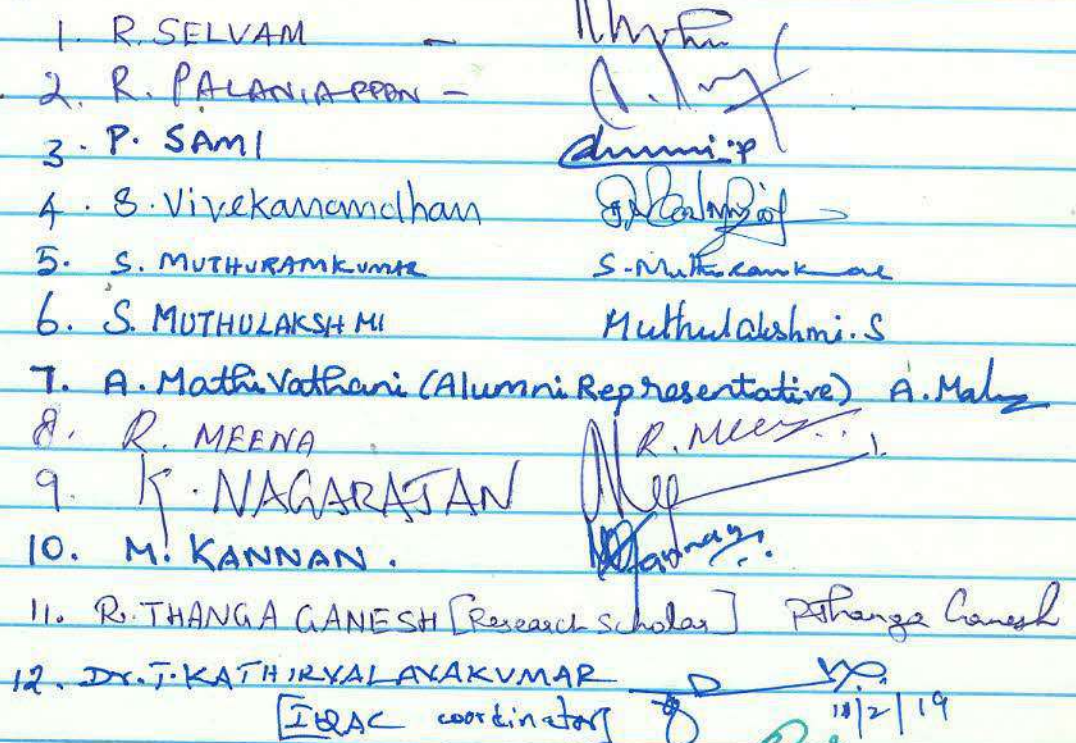 1. R. SELVAM -
2. R. PALANIAPPAN -
3. P. SAMI
4. S. Vivekanandhan
5. S. MUTHURAMKUMAR S-Muthuramkumar
6. S. MUTHULAKSHMI Muthulakshmi.S
7. A. Mathivathani (Alumni Representative)
8. R. MEENA
9. K. NAGARAJAN
10. M. KANNAN.
11. R. THANGA GANESH [Research Scholar] R.Thanga Ganesh
12. Dr. T. KATHIRVALAVAKUMAR
[IQAC coordinator]